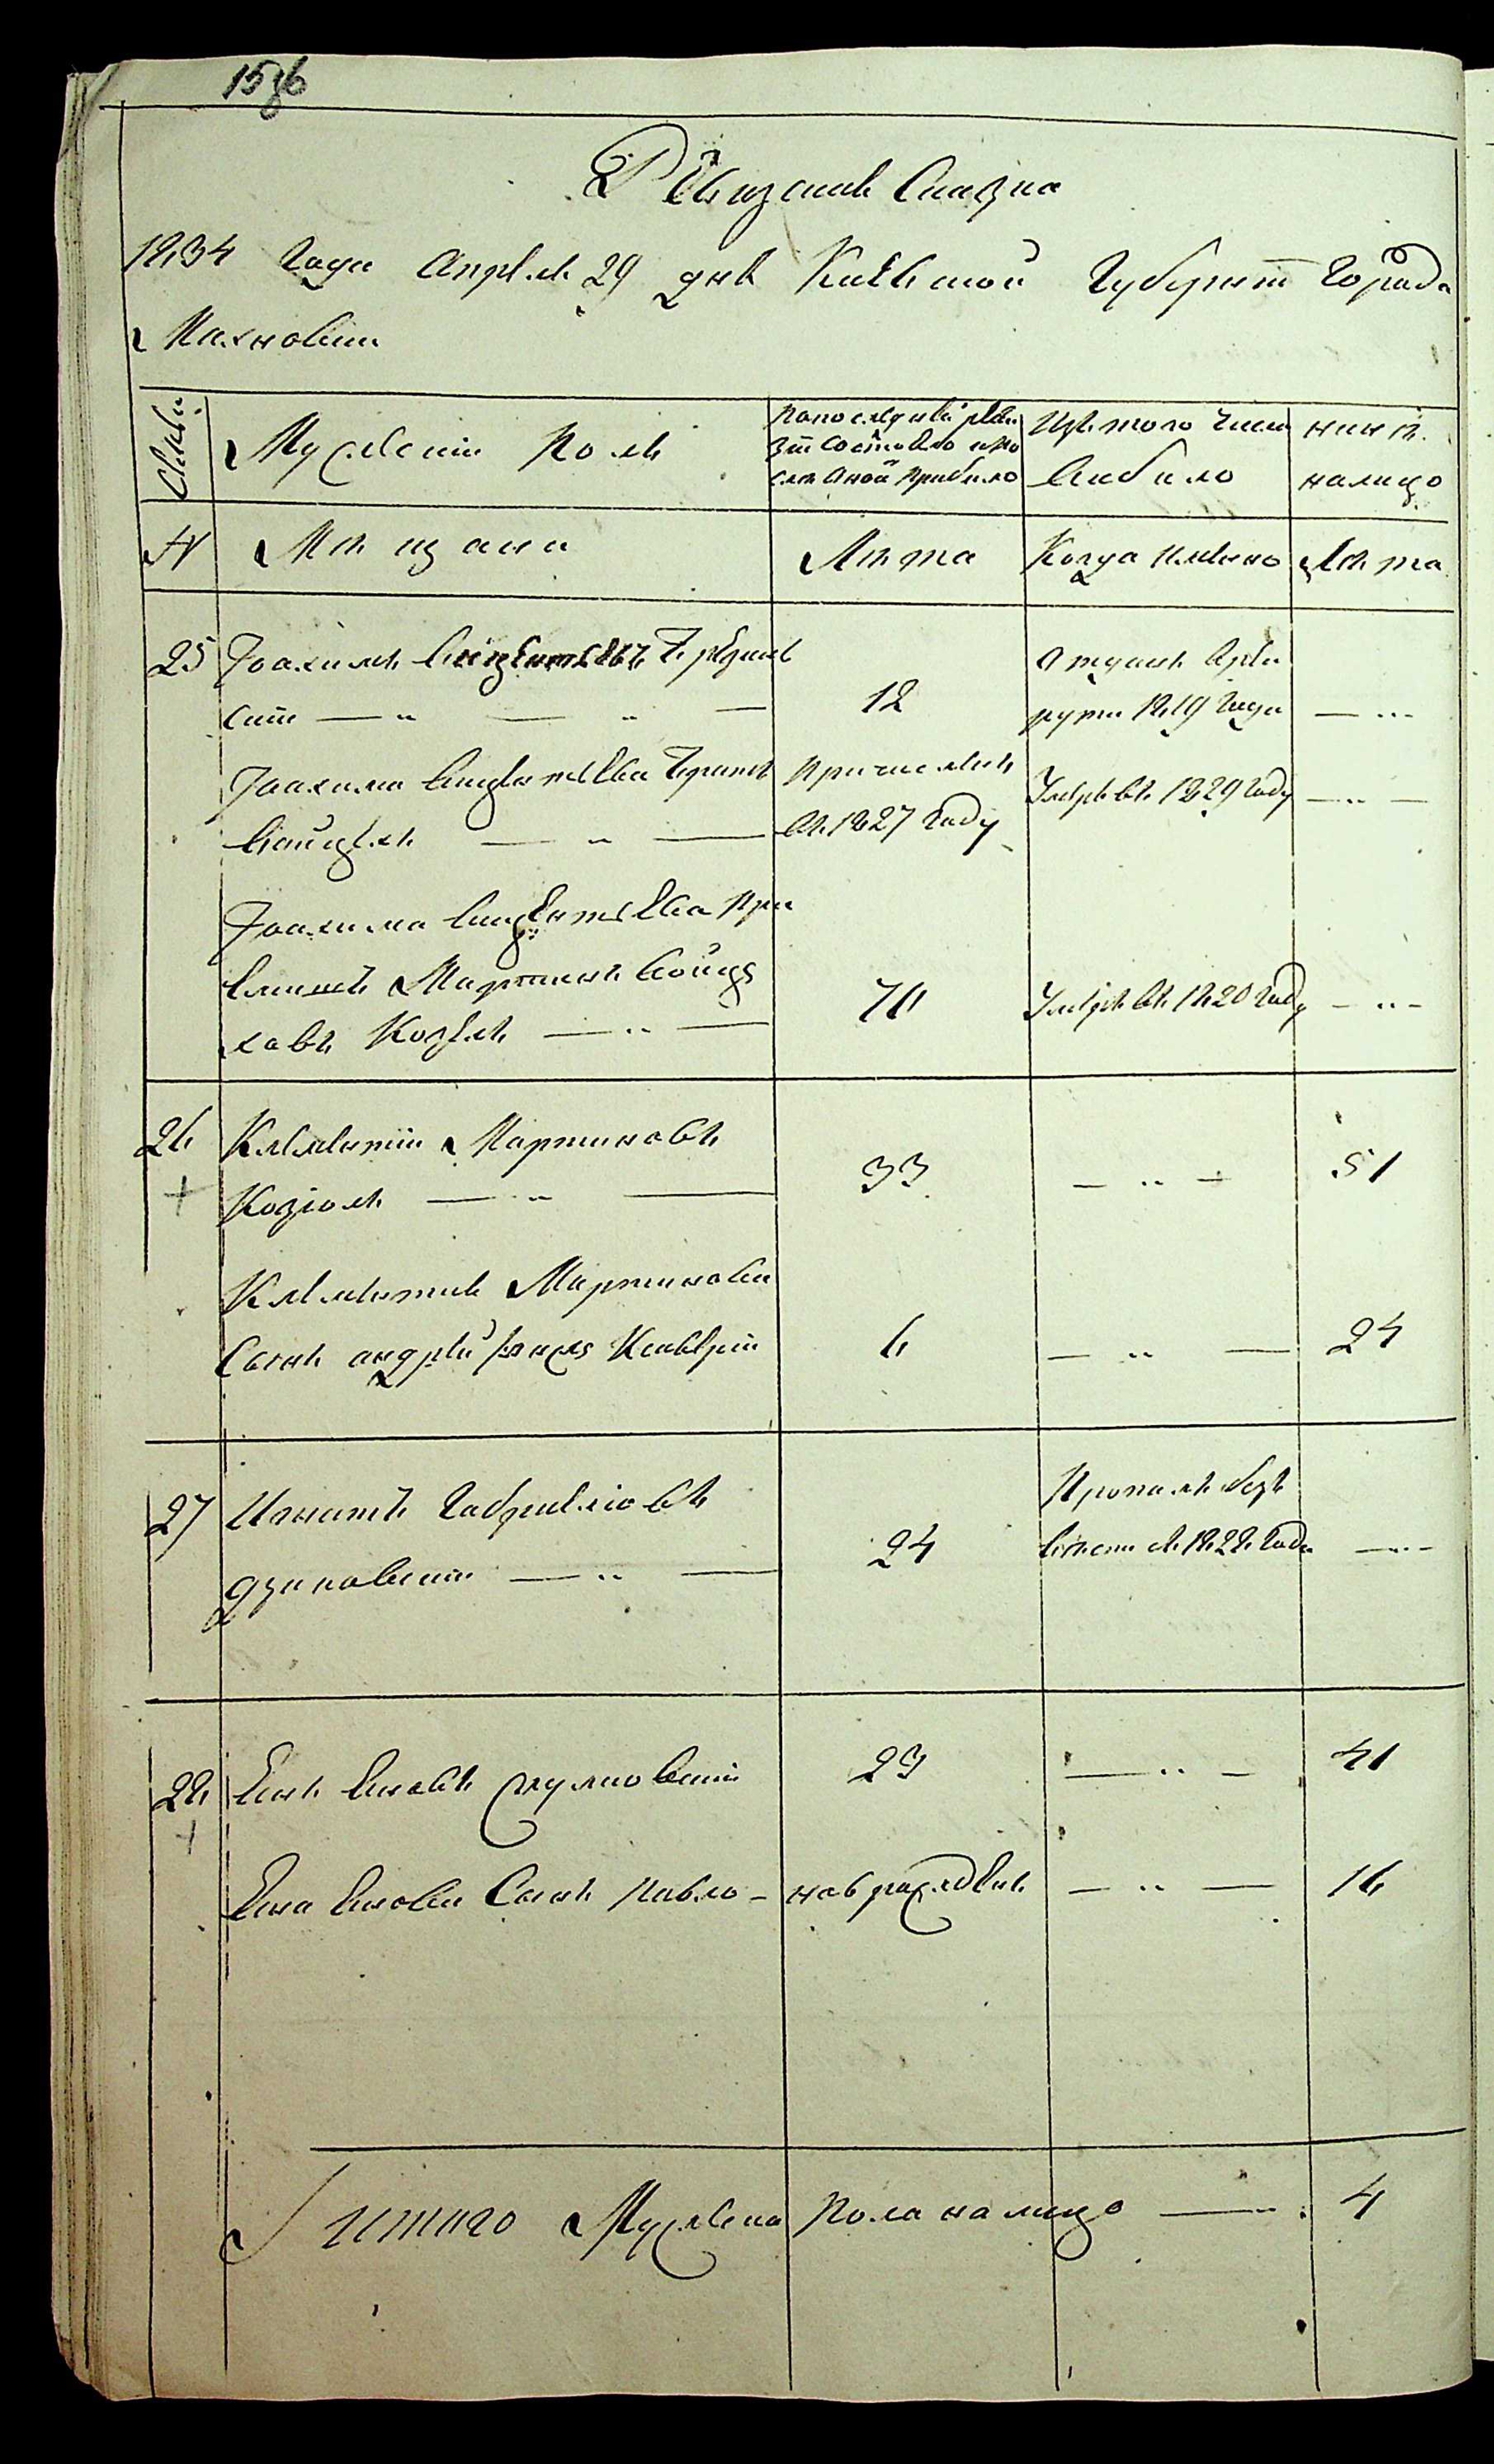 Ревизская Сказка
1834 Года Апреля 29 дня Киевской Губернїи Города
Махновки
Семьи
Мужеский Полъ
По последней реви
зїи состояло и по
сле оной прибыло
Изъ того числа
выбыло
нынѣ
налицо
№
Мѣщане
Лѣта
Когда именно
Лѣта
25
Іоахимъ Викентьевъ
12
Отданъ врек
руты 1819 Года
— „ —
Іоахима Викентьева братъ
Войцѣхъ — „ —
причисленъ
въ 1827 Году
Умеръ въ 1829 Году
— „ —
Іоахима Викентьева при
Мартинъ Войце
ховъ Козелъ — „ —
70
Умеръ въ 1820 Году
— „ —
26
Клементїй Мартиновъ
Козіолъ — „ —
33
— „ —
51
Клементия Мартинова
Сынъ андрей Ксаверїй
6
— „ —
24
27
Игнатъ Габриеліовъ
дзиковскїй — „ —
24
Пропалъ безъ
вѣсти въ 1828 Года
— „ —
28
Янъ Яновъ
23
— „ —
41
Яна Янова Сынъ Павло —
новорожденъ
— „ —
16
И того Мужеска пола налицо — „ 4